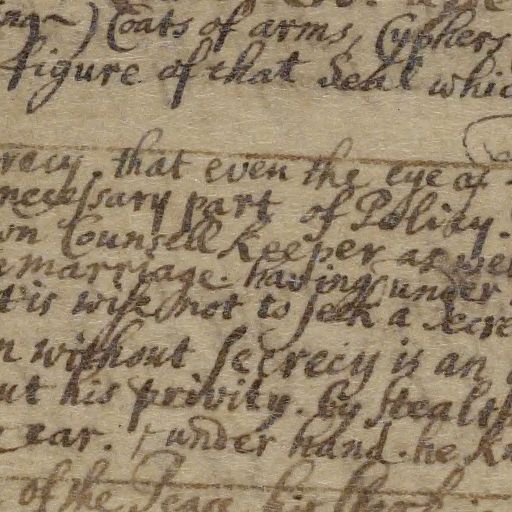 Coats of arms, Cyphers
figure of that Seal whic
recy. that even the eye of
necessary part of Policy.
wn Counsell Keeper as wel
marriage. having under
t is wise not to seek a secre
n without secrecy is an
ut his privity. by stealth
ear. under hand. he K
of the Peace